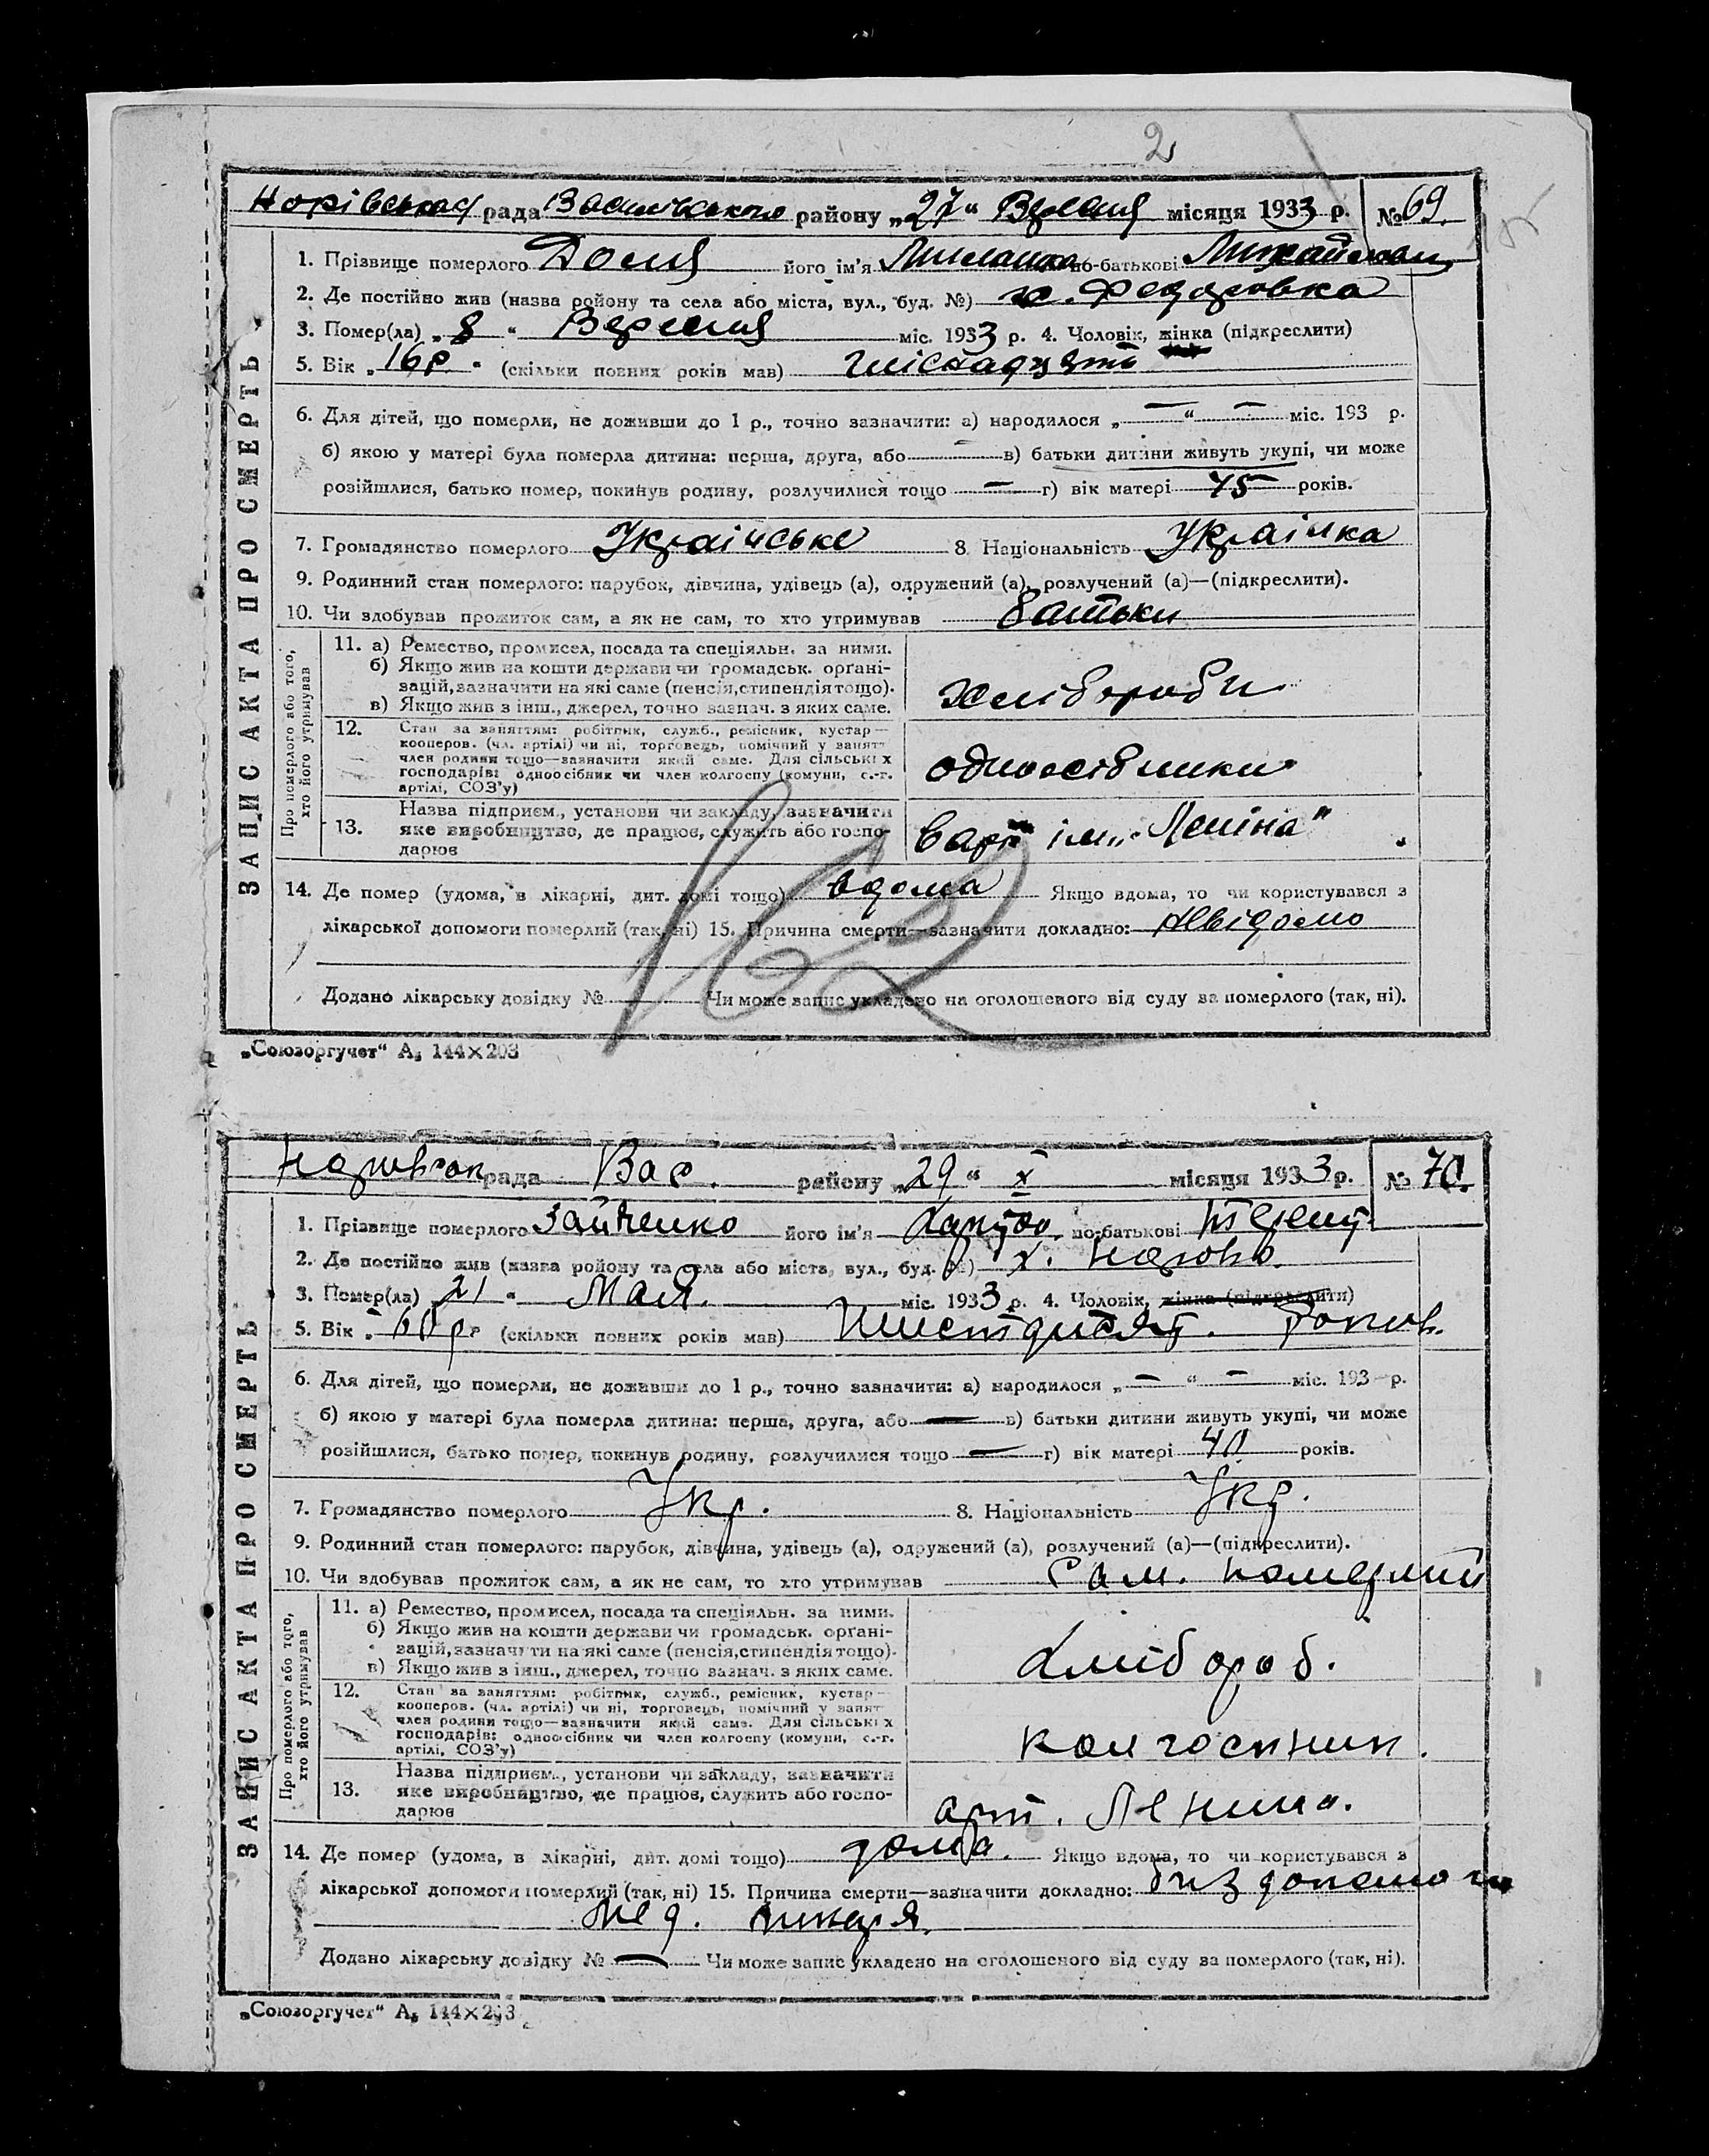 2
Норівська рада Васильківського району „27“ Вересня місяця 1933 р. № 69.
ЗАПИС АКТА ПРО СМЕРТЬ
1. Прізвище померлого Доля його ім'я по-батькові
2. Де постійно жив (назва району та села або міста, вул., буд. №) х. Федоровка
3. Помер(ла) „8“ Вересня міс. 1933 р. 4. Чоловік, жінка (підкреслити)
5. Вік „16 р.“ (скільки повних років мав) шіснадцять
6. Для дітей, що померли, не доживши до 1 р., точно зазначити: а) народилося „—“ — міс. 193 р.
б) якою у матері була померла дитина: перша, друга, або — в) батьки дитини живуть укупі, чи може
розійшлися, батько помер, покинув родину, розлучилися тощо — г) вік матері 45 років.
7. Громадянство померлого Українське 8. Національність Українка
9. Родинний стан померлого: парубок, дівчина, удівець (а), одружений (а), розлучений (а)—(підкреслити).
10. Чи здобував прожиток сам, а як не сам, то хто утримував батьки
Про померлого або того,
хто його утримував
11. а) Ремество, промисел, посада та спеціяльн. за ними.
б) Якщо жив на кошти держави чи громадськ. організацій, зазначити на які саме (пенсія, стипендія тощо).
в) Якщо жив з інш., джерел, точно зазнач. з яких саме.
хлібороби
12. Стан за заняттям: робітник, служб., ремісник, кустар—
кооперов. (чл. артілі) чи ні, торговець, помічний у занят.
член родини тощо—зазначити який саме. Для сільських
господарів: одноосібник чи член колгоспу (комуни, с.-г.
артілі, СОЗ'у)
одноосібники
13. Назва підприєм., установи чи закладу, зазначити
яке виробництво, де працює, служить або господарює
ім. „Леніна“
14. Де помер (удома, в лікарні, дит. домі тощо) вдома Якщо вдома, то чи користувався з
лікарської допомоги померлий (так, ні) 15. Причина смерти—зазначити докладно: невідомо
Додано лікарську довідку № Чи може запис укладено на оголошеного від суду за померлого (так, ні).
„Союзоргучет“ А₅ 144×203
рада Вас. району „29“ X місяця 1933 р. № 70.
ЗАПИС АКТА ПРО СМЕРТЬ
1. Прізвище померлого Зайченко його ім'я по-батькові
2. Де постійно жив (назва району та села або міста, вул., буд. №) х.
3. Помер(ла) 21 „ Мая. міс. 1933 р. 4. Чоловік, жінка (підкреслити)
5. Вік „60 р.“ (скільки повних років мав) Шестдисят. Роков.
6. Для дітей, що померли, не доживши до 1 р., точно зазначити: а) народилося „—“ — міс. 193 р.
б) якою у матері була померла дитина: перша, друга, або — в) батьки дитини живуть укупі, чи може
розійшлися, батько помер, покинув родину, розлучилися тощо — г) вік матері 40 років.
7. Громадянство померлого Укр. 8. Національність Укр.
9. Родинний стан померлого: парубок, дівчина, удівець (а), одружений (а), розлучений (а)—(підкреслити).
10. Чи здобував прожиток сам, а як не сам, то хто утримував Сам. померлий
Про померлого або того,
хто його утримував
11. а) Ремество, промисел, посада та спеціяльн. за ними.
б) Якщо жив на кошти держави чи громадськ. організацій, зазначити на які саме (пенсія, стипендія тощо).
в) Якщо жив з інш., джерел, точно зазнач. з яких саме.
Хлібороб.
12. Стан за заняттям: робітник, служб., ремісник, кустар—
кооперов. (чл. артілі) чи ні, торговець, помічний у занят.
член родини тощо—зазначити який саме. Для сільських
господарів: одноосібник чи член колгоспу (комуни, с.-г.
артілі, СОЗ'у)
колгоспник.
13. Назва підприєм., установи чи закладу, зазначити
яке виробництво, де працює, служить або господарює
арт. Ленина.
14. Де помер (удома, в лікарні, дит. домі тощо) дома. Якщо вдома, то чи користувався з
лікарської допомоги померлий (так, ні) 15. Причина смерти—зазначити докладно: биз допомоги
Мед. ликаря.
Додано лікарську довідку № — Чи може запис укладено на оголошеного від суду за померлого (так, ні).
„Союзоргучет“ А₅ 144×203